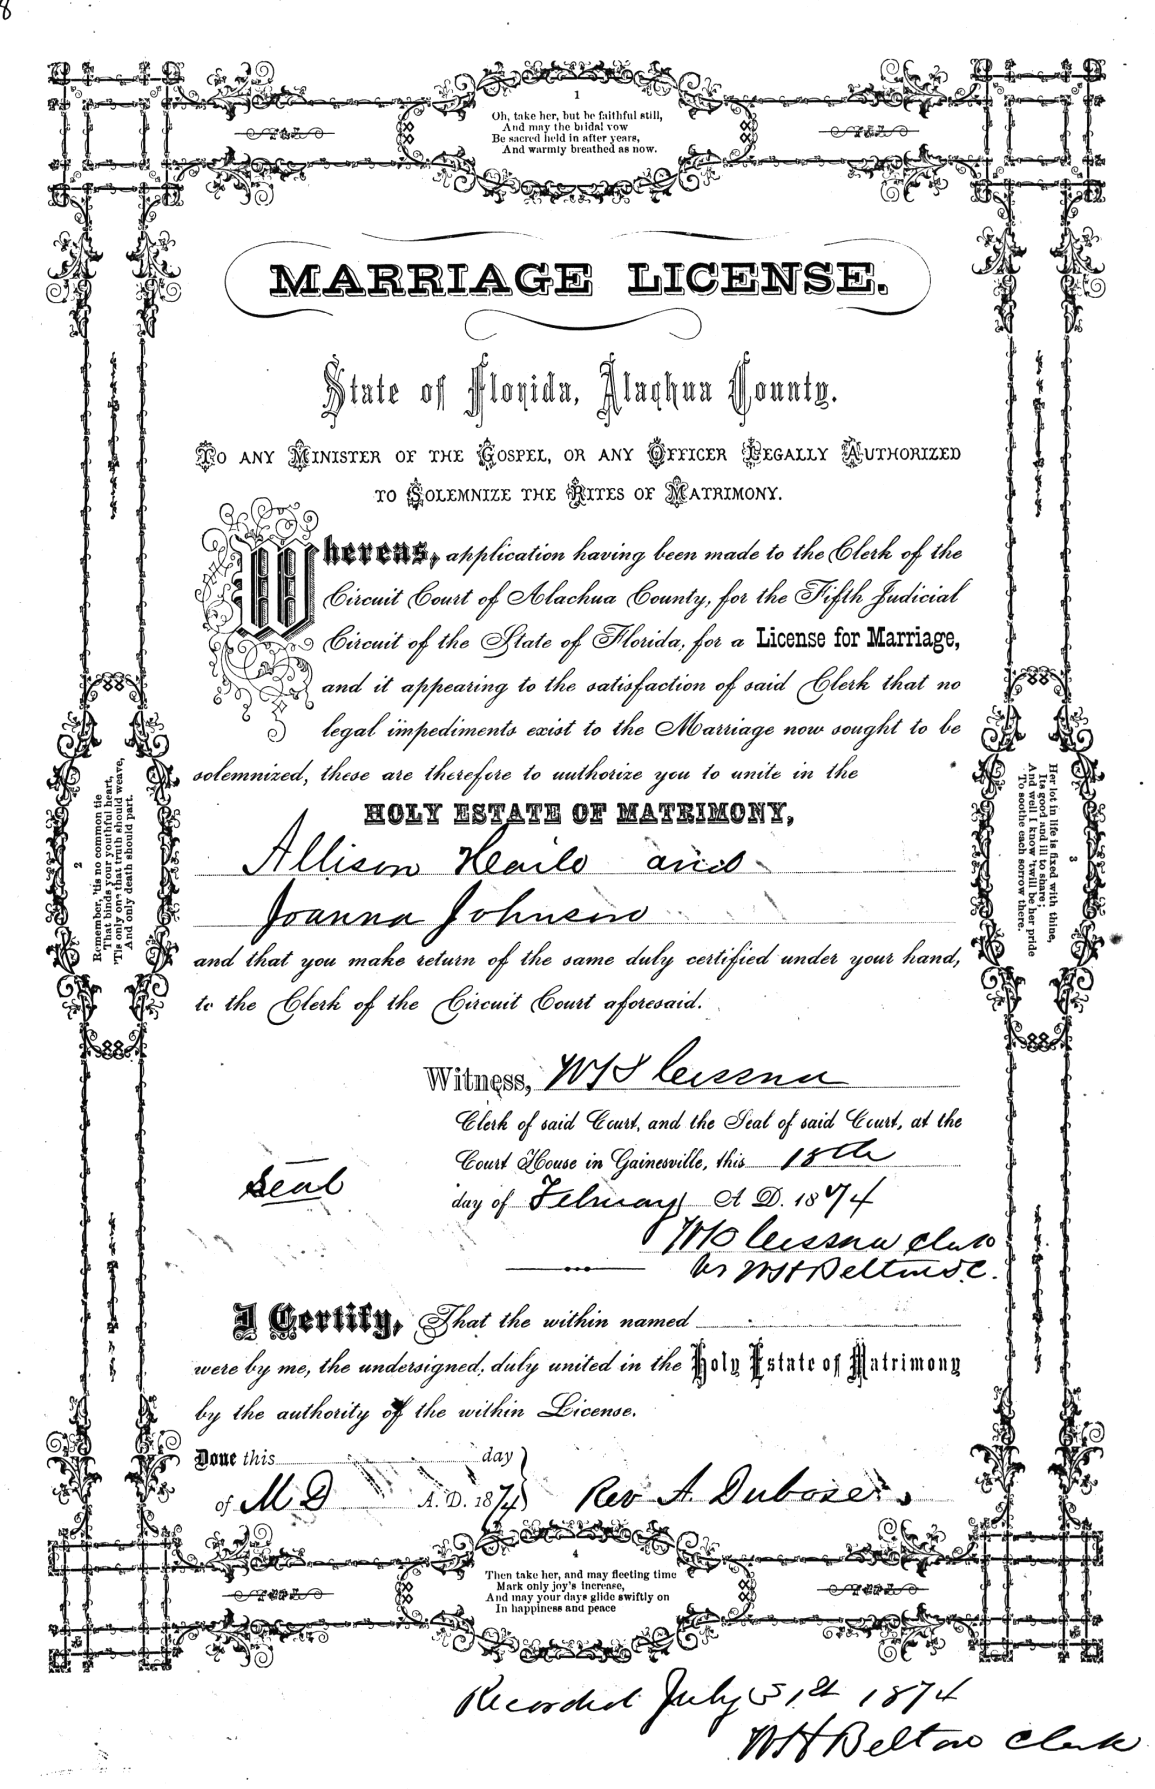 8
1
Oh, take her, but be faithful still,
And may the bridal vow
Be sacred held in after years,
And warmly breathed as now.
MARRIAGE LICENSE.
State of Florida, Alachua County.
TO ANY MINISTER OF THE GOSPEL, OR ANY OFFICER LEGALLY AUTHORIZED
TO SOLEMNIZE THE RITES OF MATRIMONY.
Whereas, application having been made to the Clerk of the
Circuit Court of Alachua County, for the Fifth Judicial
Circuit of the State of Florida, for a License for Marriage,
and it appearing to the satisfaction of said Clerk that no
legal impediments exist to the Marriage now sought to be
solemnized, these are therefore to authorize you to unite in the
HOLY ESTATE OF MATRIMONY,
Allison and
Joanna Johnson
and that you make return of the same duly certified under your hand,
to the Clerk of the Circuit Court aforesaid.
2
Remember, 'tis no common tie
That binds your youthful heart,
'Tis only one that truth should weave,
And only death should part.
3
Her lot in life is fixed with thine,
Its good and ill to share;
And well I know 'twill be her pride
To soothe each sorrow there.
Witness, Cessna
Clerk of said Court, and the Seal of said Court, at the
Court House in Gainesville, this 18th
Seal
day of February A D. 1874
Cessna Clerk
WH Belton D.C.
I Certify, That the within named
were by me, the undersigned, duly united in the Holy Estate of Matrimony
by the authority of the within License.
Done this day
of M D A. D. 1874 Rev A. Dubose
4
Then take her, and may fleeting time
Mark only joy's increase,
And may your days glide swiftly on
In happiness and peace
Recorded July 31st 1874
WH Belton Clerk